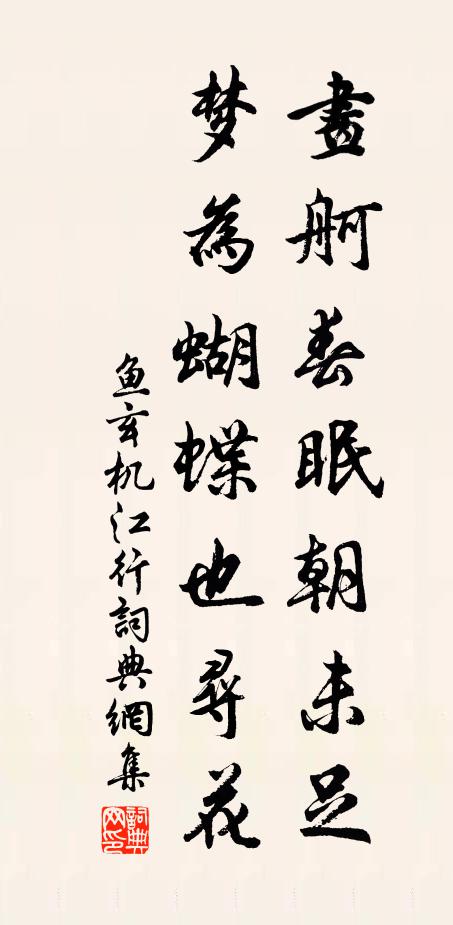 畫舸春眠朝未足
梦為蝴蝶也尋花
鱼玄机江行詞典網集
詞典网印